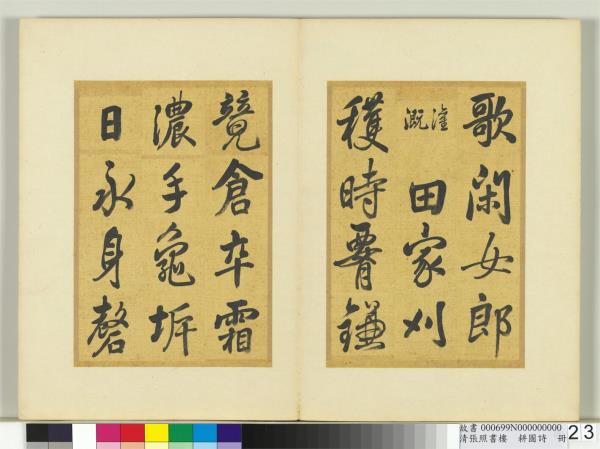 歌閑女郎
灌溉
田家刈
穫時腰鎌
竟倉卒霜
濃手龜坼
日永身磬
故書 000699N000000000
清張照書樓 耕圖詩 冊
23